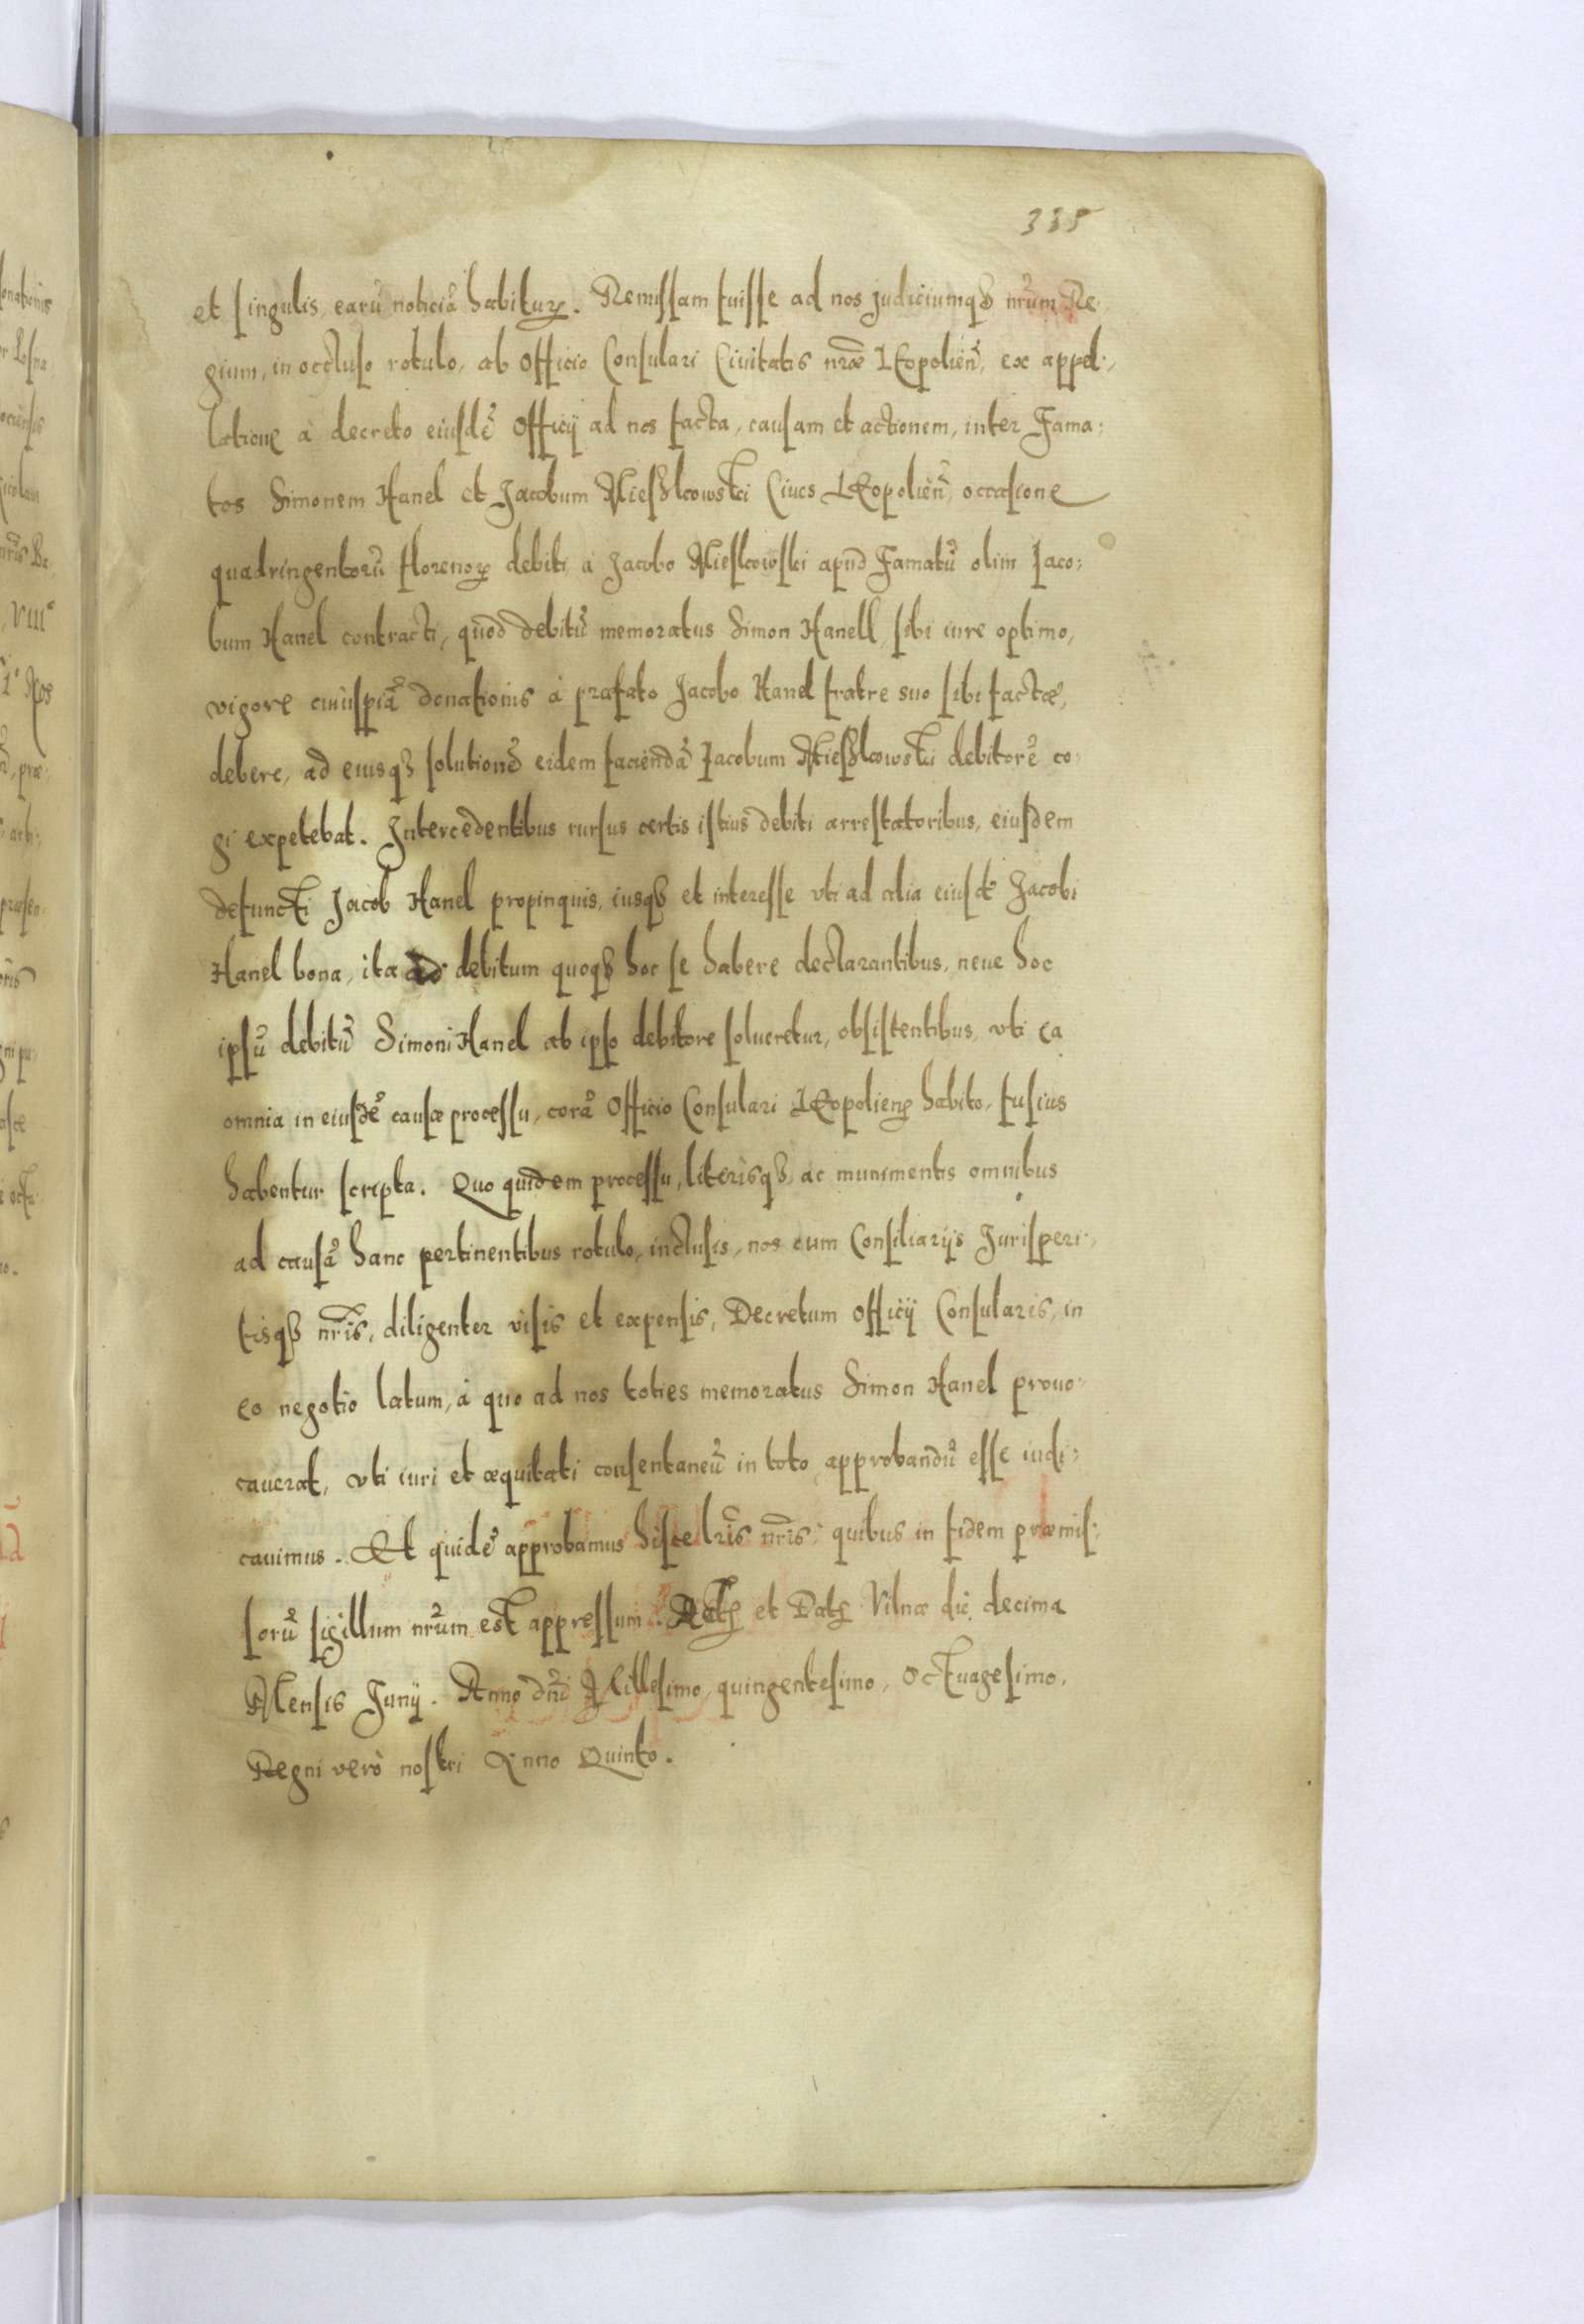 335
et singulis, earũ noticiã habituꝝ. Remissam fuisse ad nos judiciumqꝫ nr̃um Re-
gium, in occluso rotulo, ab Officio Consulari Ciuitatis nr̃æ LEopolieñ, ex appel-
latione à decreto eiusdẽ Officij ad nos facta, causam et actionem, inter Fama-
tos Simonem Hanel et Jacobum Mieszkowski Ciues LEopolieñ, occasione
quadringentorũ florenoꝝ debiti à Jacobo Mieskowski apud Famatũ olim Jaco-
bum Hanel contracti, quod debitũ memoratus Simon Hanell, sibi iure optimo,
vigore cuiuspiã donationis à præfato Jacobo Hanel fratre suo sibi factæ,
debere, ad eiusqꝫ solutionẽ eidem faciendã Jacobum Mieszkowski debitorẽ co-
gi expetebat. Intercedentibus rursus certis istius debiti arrestatoribus, eiusdem
defuncti Jacob Hanel propinquis, iusqꝫ et interesse vti ad alia eiusdẽ Jacobi
Hanel bona, ita ad debitum quoqꝫ hoc se habere declarantibus, neue hoc
ipsũ debitũ Simoni Hanel ab ipso debitore solueretur, obsistentibus, vti ea
omnia in eiusdẽ causæ processu, corã Officio Consulari LEopolien̄ habito, fusius
habentur scripta. Quo quidem processu, literisqꝫ ac munimentis omnibus
ad causã hanc pertinentibus rotulo, inclusis, nos cum Consiliarijs Jurisperi-
tisqꝫ nr̃is, diligenter visis et expensis, Decretum Officij Consularis, in
eo negotio latum, à quo ad nos toties memoratus Simon Hanel prouo-
cauerat, vti iuri et æquitati consentaneũ in toto approbandũ esse iudi-
cauimus. Et quidẽ approbamus hisce lr̃is nr̃is, quibus in fidem præmis-
sorũ sigillum nr̃um est appressum. Actꝭ et Datꝭ Vilnæ die decima
Mensis Junij. Anno dñi Millesimo, quingentesimo, Octuagesimo.
Regni verò nostri Anno Quinto.